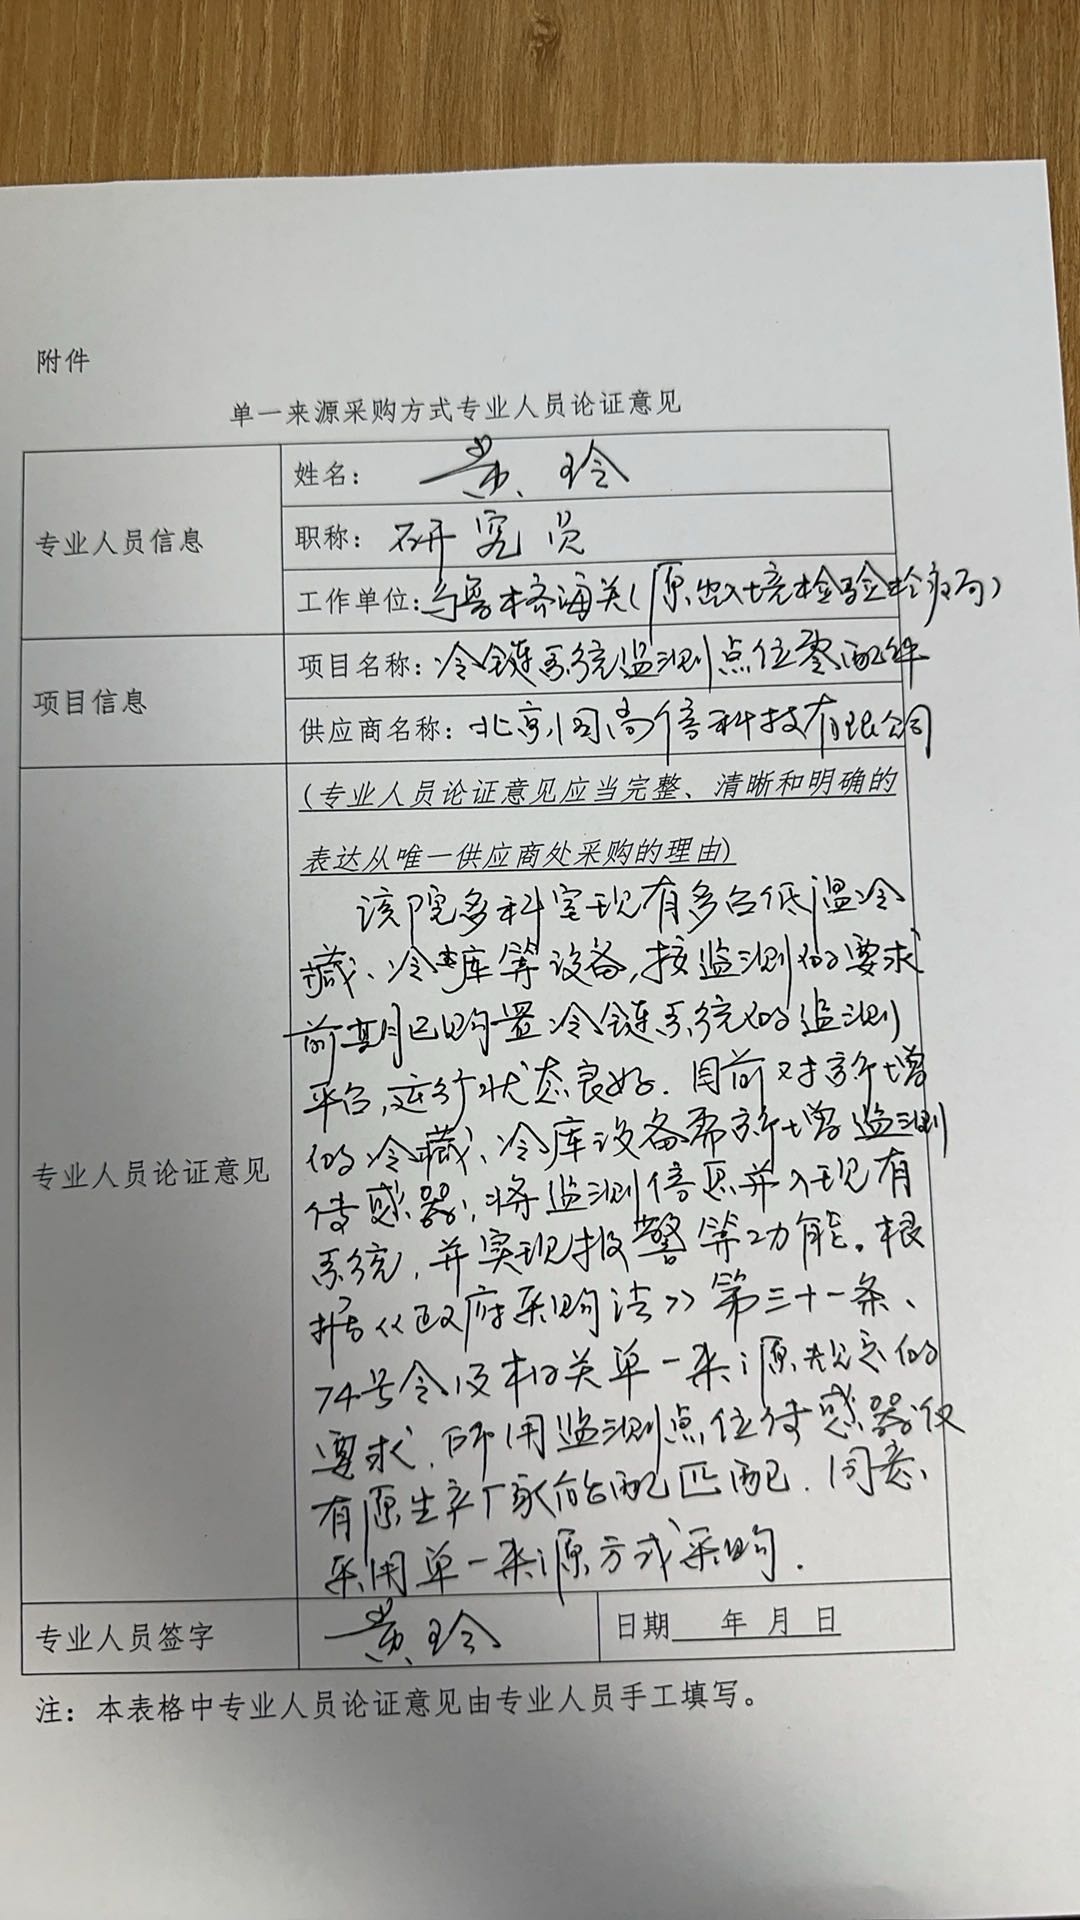 附件
单一来源采购方式专业人员论证意见
专业人员信息
姓名: 黄玲
职称: 研究员
工作单位: 乌鲁木齐海关(原出入境检验检疫局)
项目信息
项目名称: 冷链系统监测点位零配件
供应商名称: 北京同尚信科技有限公司
专业人员论证意见
(专业人员论证意见应当完整、清晰和明确的
表达从唯一供应商处采购的理由)
该院多科室现有多台低温冷
藏、冷库等设备,按监测的要求
前期已购置冷链系统的监测
平台,运行状态良好.目前对新增
的冷藏、冷库设备需新增监测
传感器,将监测信息并入现有
系统,并实现报警等功能。根
据《政府采购法》第三十一条、
74号令及相关单一来源规定的
要求.所用监测点位传感器仅
有原生产厂家能配匹配.同意
采用单一来源方式采购.
专业人员签字
黄玲
日期 年 月 日
注: 本表格中专业人员论证意见由专业人员手工填写。